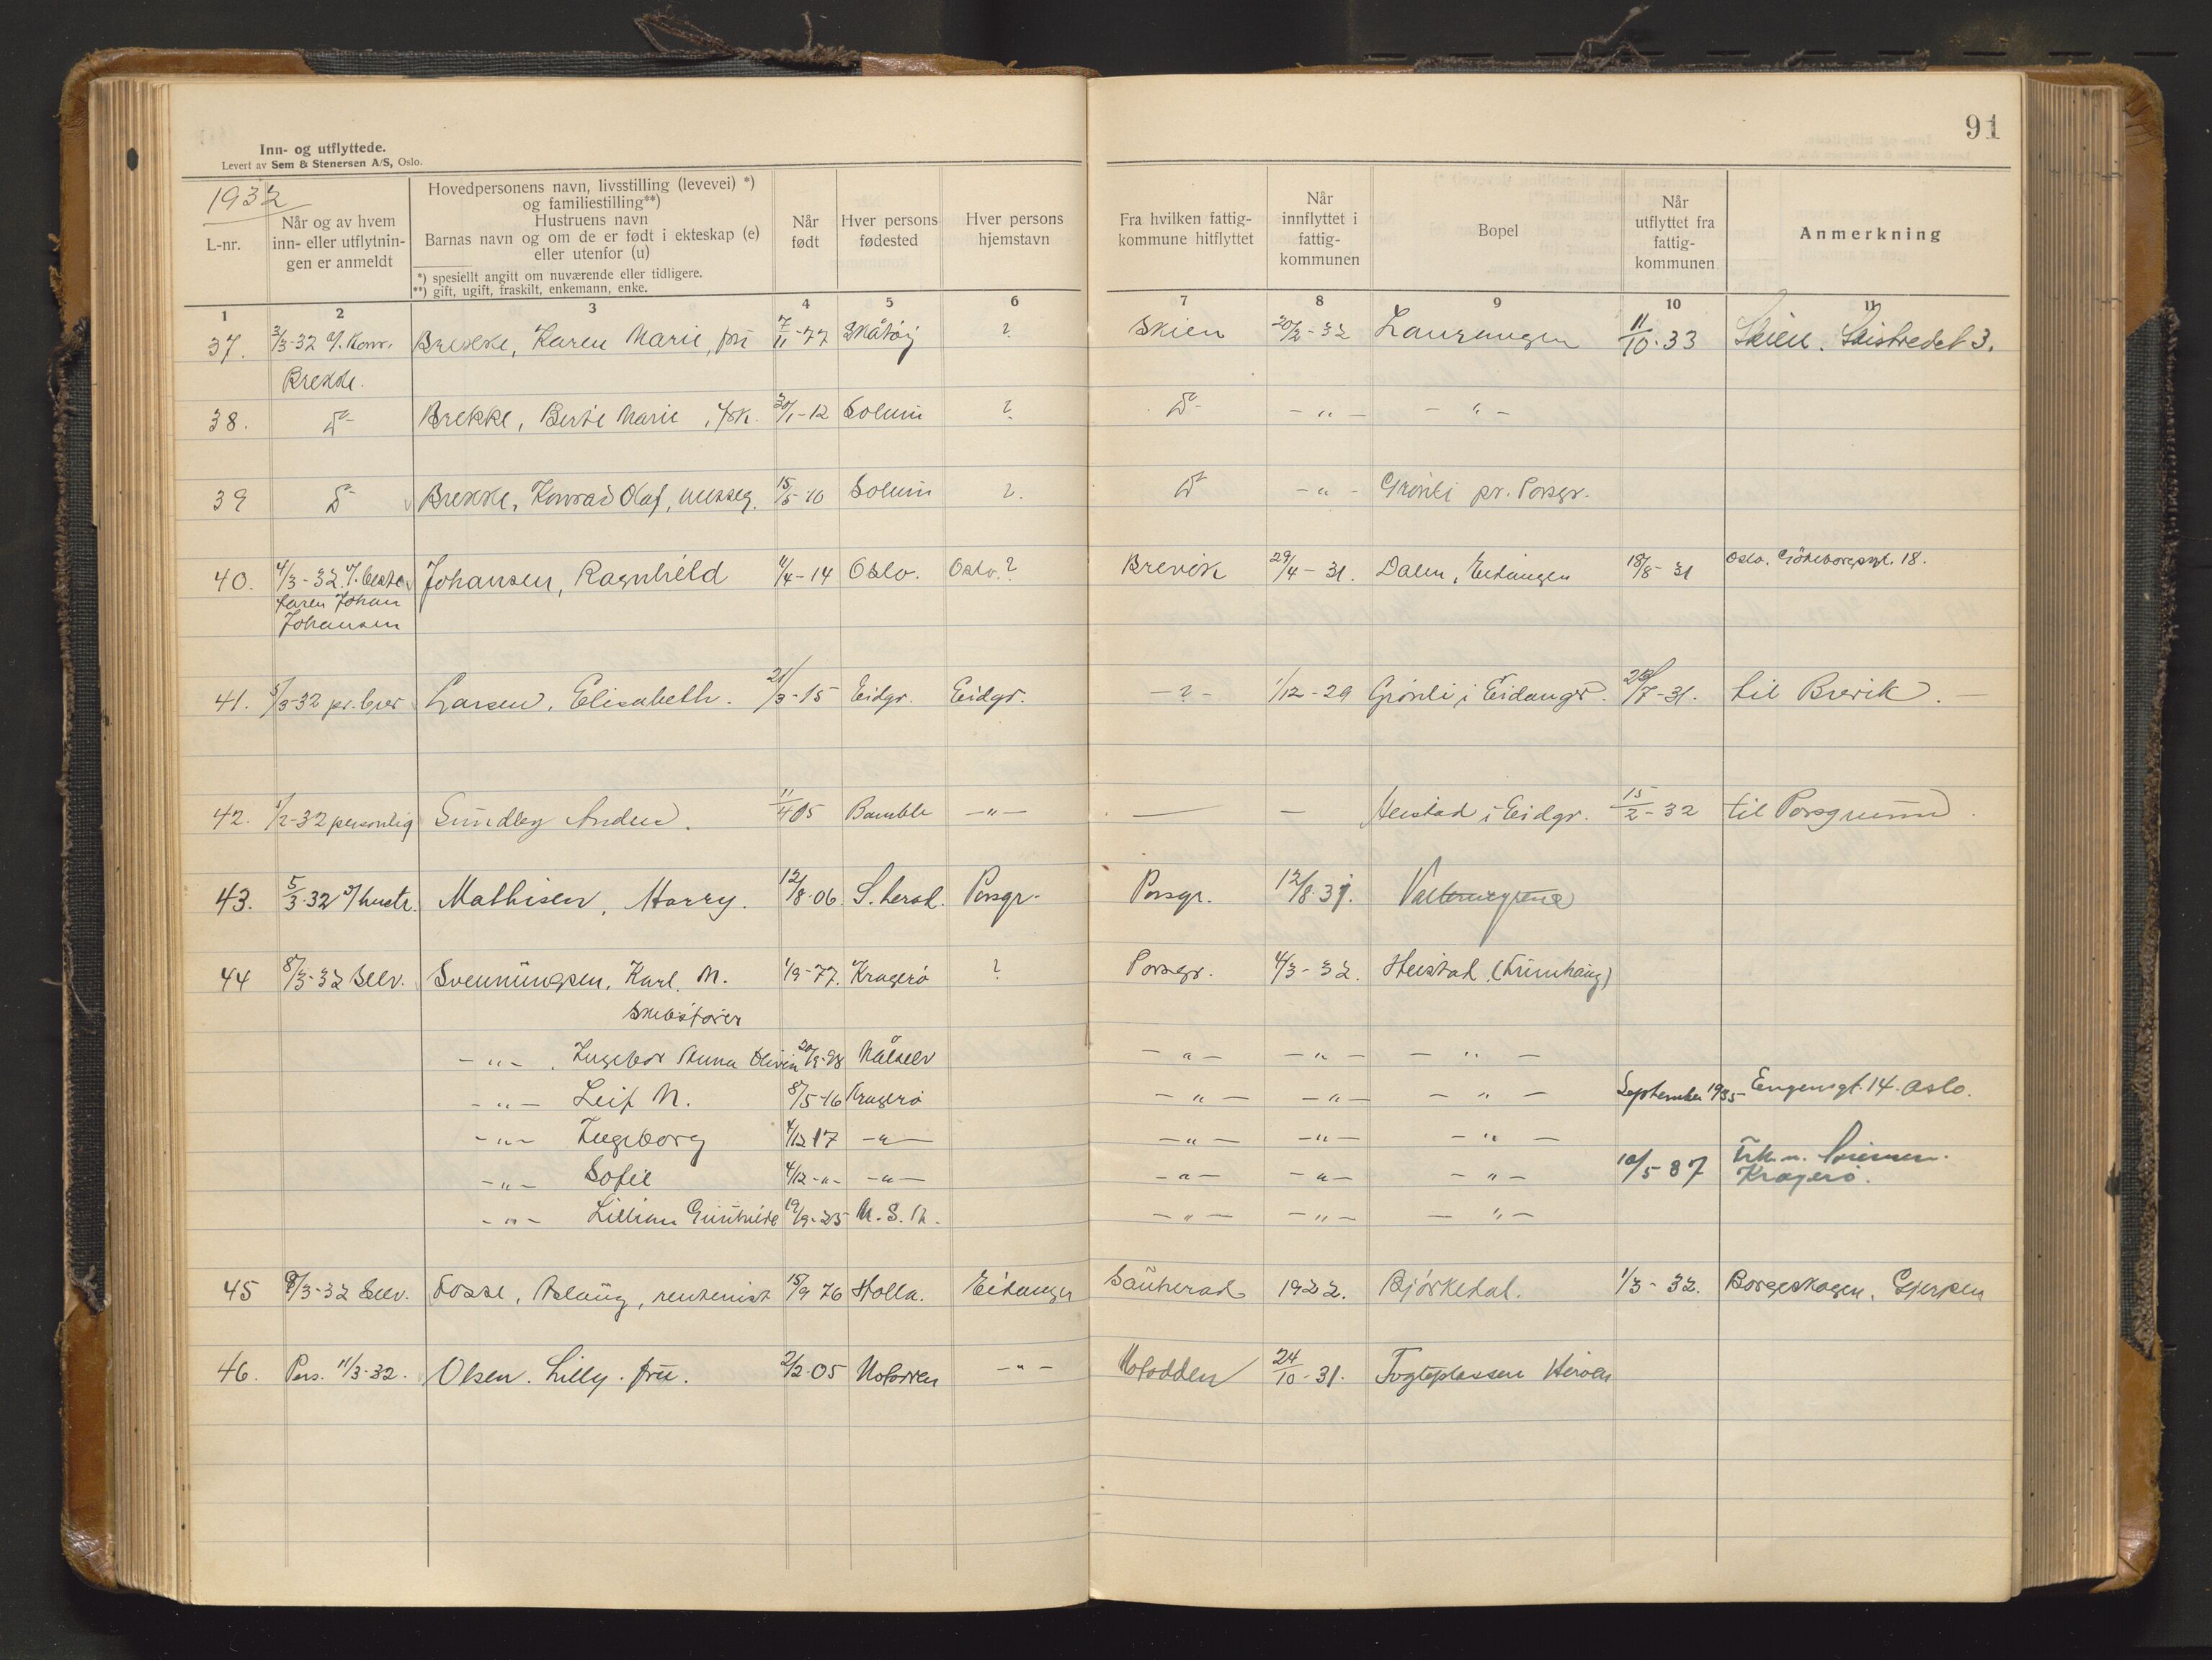 91
Inn- og utflyttede.
Levert av Sem & Stenersen A/S, Oslo.
1932
L-nr.
Når og av hvem inn- eller utflytnin-gen er anmeldt
Hovedpersonens navn, livsstilling (levevei) *)
og familiestilling**)
Hustruens navn
Barnas navn og om de er født i ekteskap (e)
eller utenfor (u)
*) spesiellt angitt om nuværende eller tidligere.
**) gift, ugift, fraskilt, enkemann, enke.
Når født
Hver persons fødested
Hver persons hjemstavn
Fra hvilken fattig-kommune hitflyttet
Når innflyttet i fattig-kommunen
Bopel
Når utflyttet fra fattig-kommunen
Anmerkning
1 2 3 4 5 6 7 8 9 10 11
37. 3/3-32 v/. Konr. Brekke, Karen Marie, fru 7/11-77 Skåtøy ? Skien 20/2-32 Langangen 11/10-33 Skien. 3.
Brekke.
38. D° Brekke, Berte Marie, frk. 30/1-12 Solum ? D° -"- -"-
39 D° Brekke, Konrad Olaf, 15/5-10 Solum ?. D° -"- Grønli pr. Porsgr.
40. 4/3-32 v/. beste- Johansen, Ragnhild 11/4-14 Oslo. Oslo.? Brevik 29/4-31. Dalen, Eidanger 18/8-31 Oslo. Göteborggt. 18.
faren Johan
Johansen
41. 5/3-32 pr. brev Larsen, Elisabeth. 21/3-15 Eidgr. Eidgr. -?- 1/12-29 Grönli i Eidangr. 23/7-31. til Brevik.
42. 1/2-32 personlig Sundby Anders. 11/4 05 Bamble -"- — — Heistad i Eidgr. 15/2-32 til Porsgrunn.
43. 5/3-32 v/ hustr. Mathisen, Harry. 12/8-06. S. herad. Porsgr. Porsgr. 12/8-31.
44 8/3-32 Selv. Svenningsen, Karl. M. 1/9-77. Kragerø ? Porsgr. 4/3-32. Heistad,
Skibsfører
-"- . Anna Olivia 20/9-98 Målselv -"- -"- -"-
-"- Leif M. 8/5-16 Kragerø -"- -"- -"- September 1935 Engensgt. 14. Oslo.
-"- Ingeborg 4/12 17 -"- -"- -"- -"-
-"- Sofie 4/12-"- -"- -"- -"- -"- 10/5-37
Kragerø.
-"- Lillian Gunhilde 19/9-25 U.S.A. -"- -"- -"-
45 8/3-32 Selv. Fosse, Aslaug, rentenist 15/9 76 Holla. Eidanger Sauherad 1922. Bjørkedal. 1/3-32. Borgeskogen, Gjerpen
46. Pers. 11/3-32. Olsen. Lilly. fru. 2/2-05 Notodden -"- Notodden 24/10-31. Fogteplassen Herøen